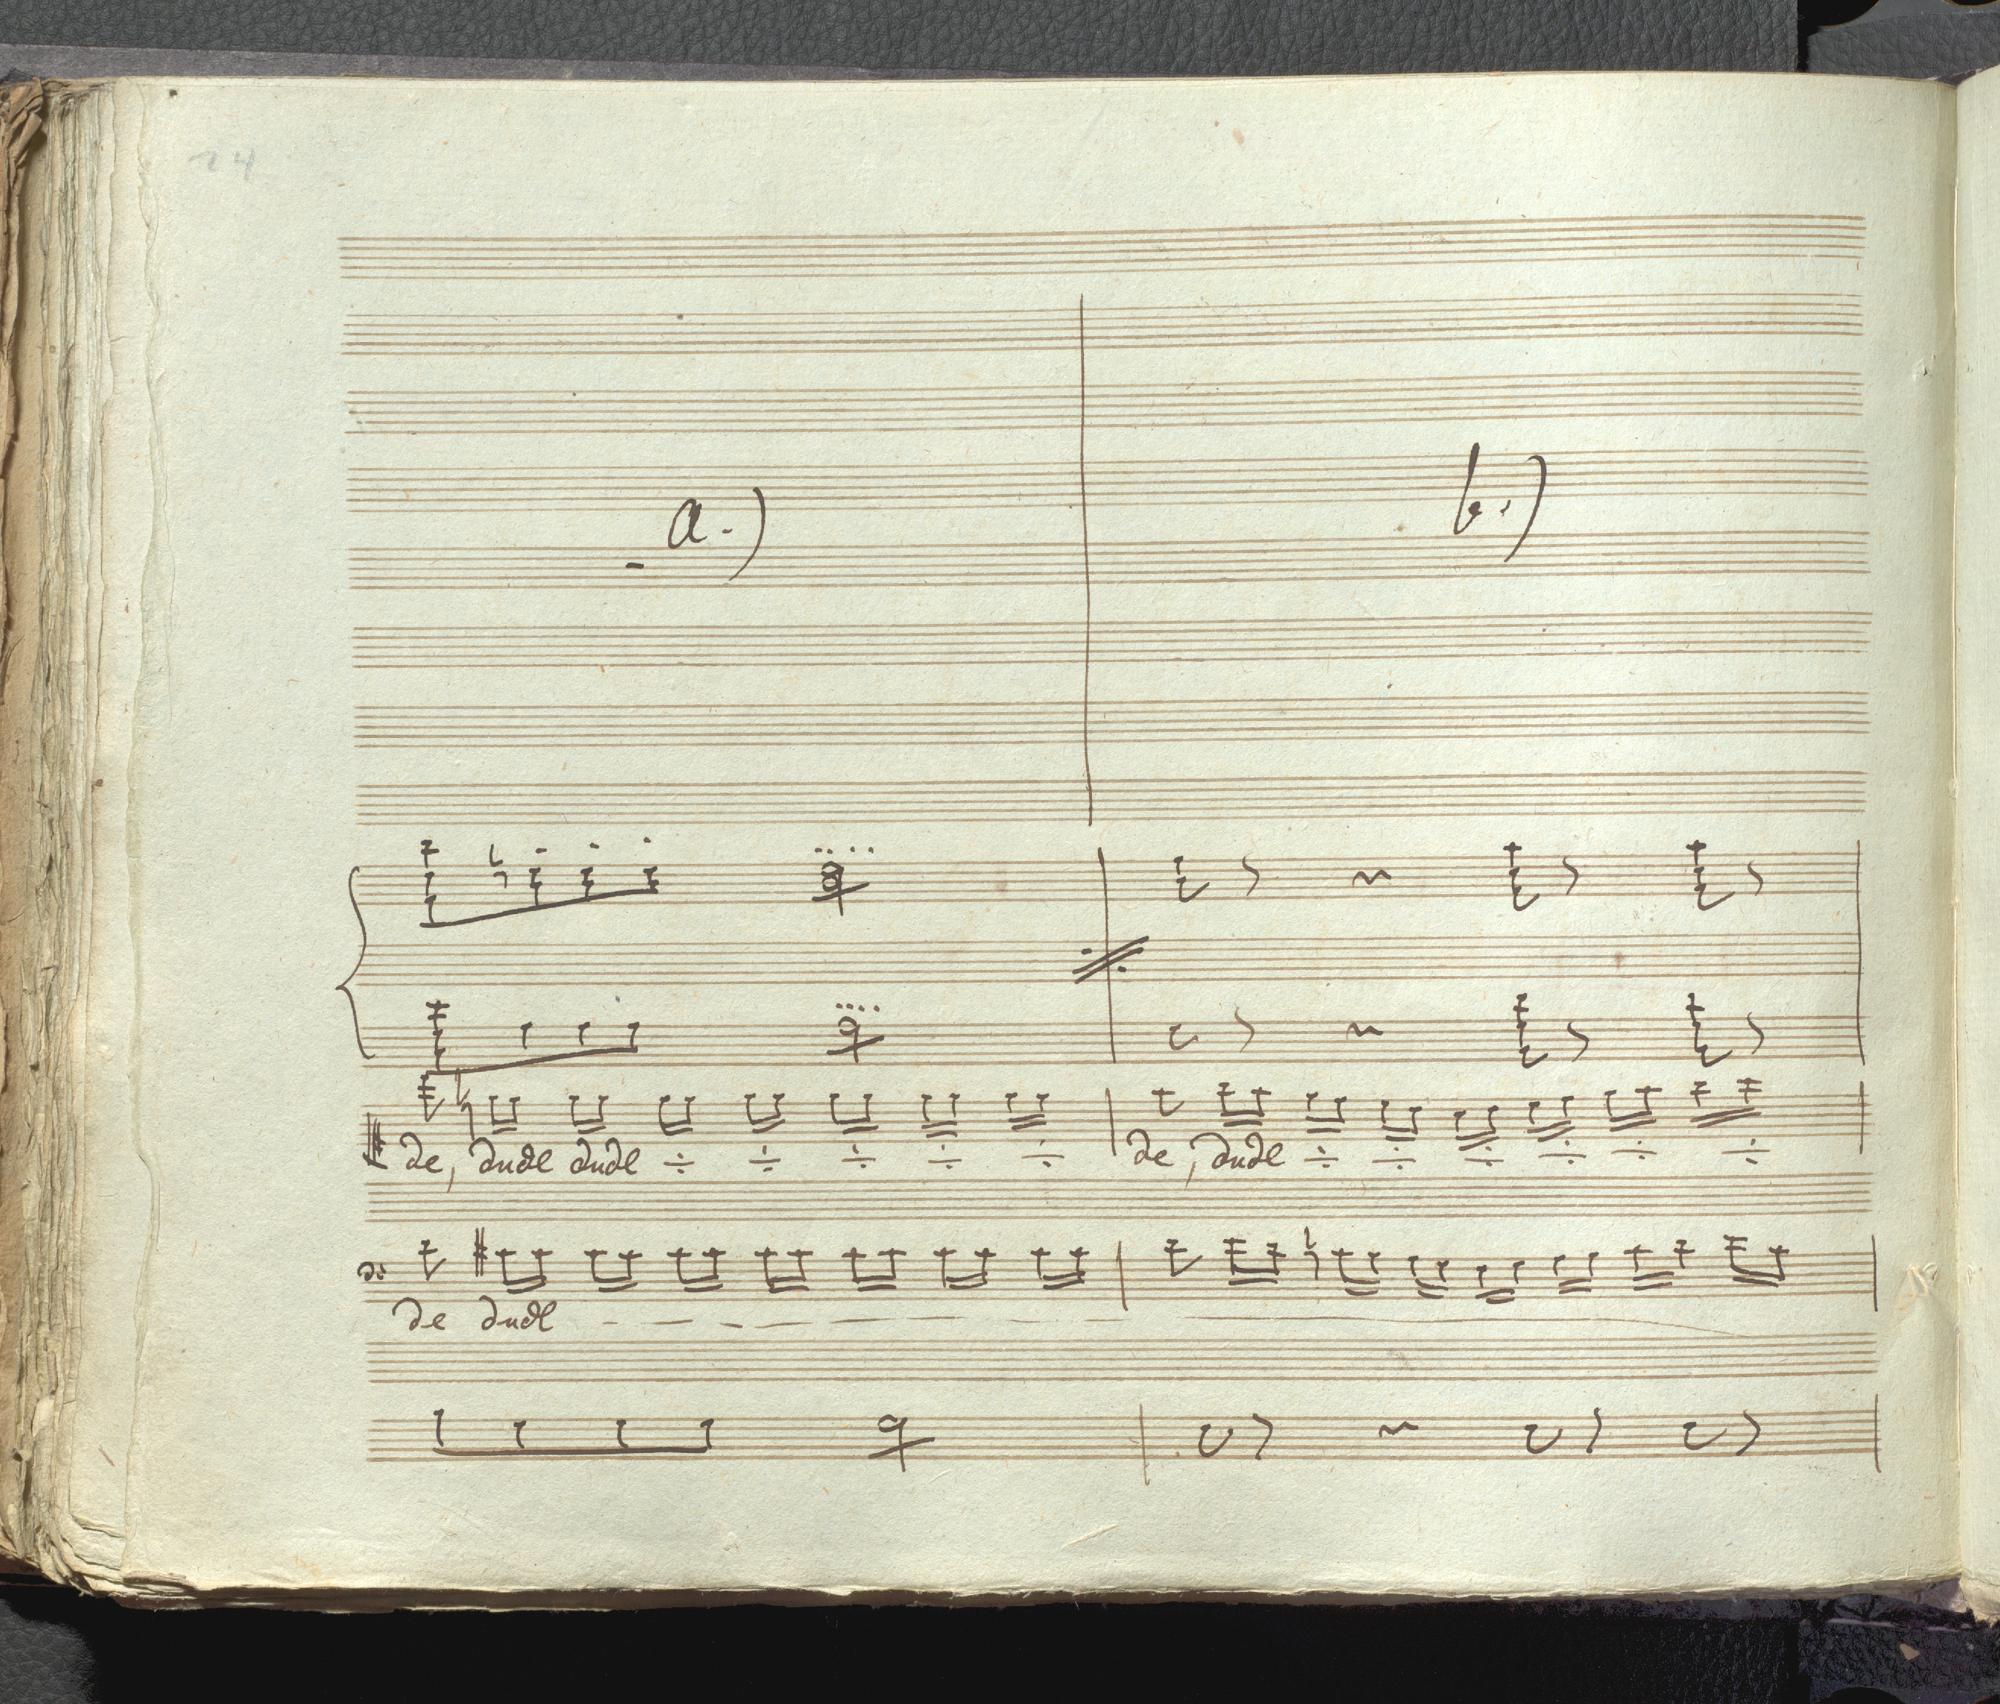 24
a.)
b.)
de, dudl dudl ÷ ÷ ÷ ÷ ÷ de, dudl ÷ ÷ ÷ ÷ ÷ ÷
de dudl